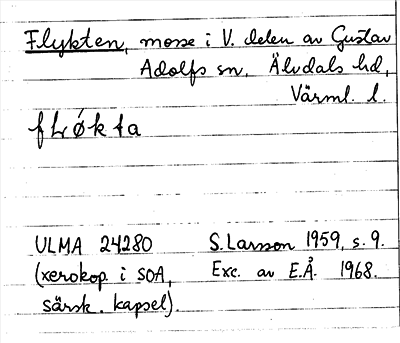 Flykten, mosse i V. delen av Gustav
Adolfs sn, Älvdals hd,
Värml. l.
ULMA 24280 S. Larsson 1959, s. 9.
(xerokop. i SOA, Exc. av E.Å. 1968.
särsk. kapsel).